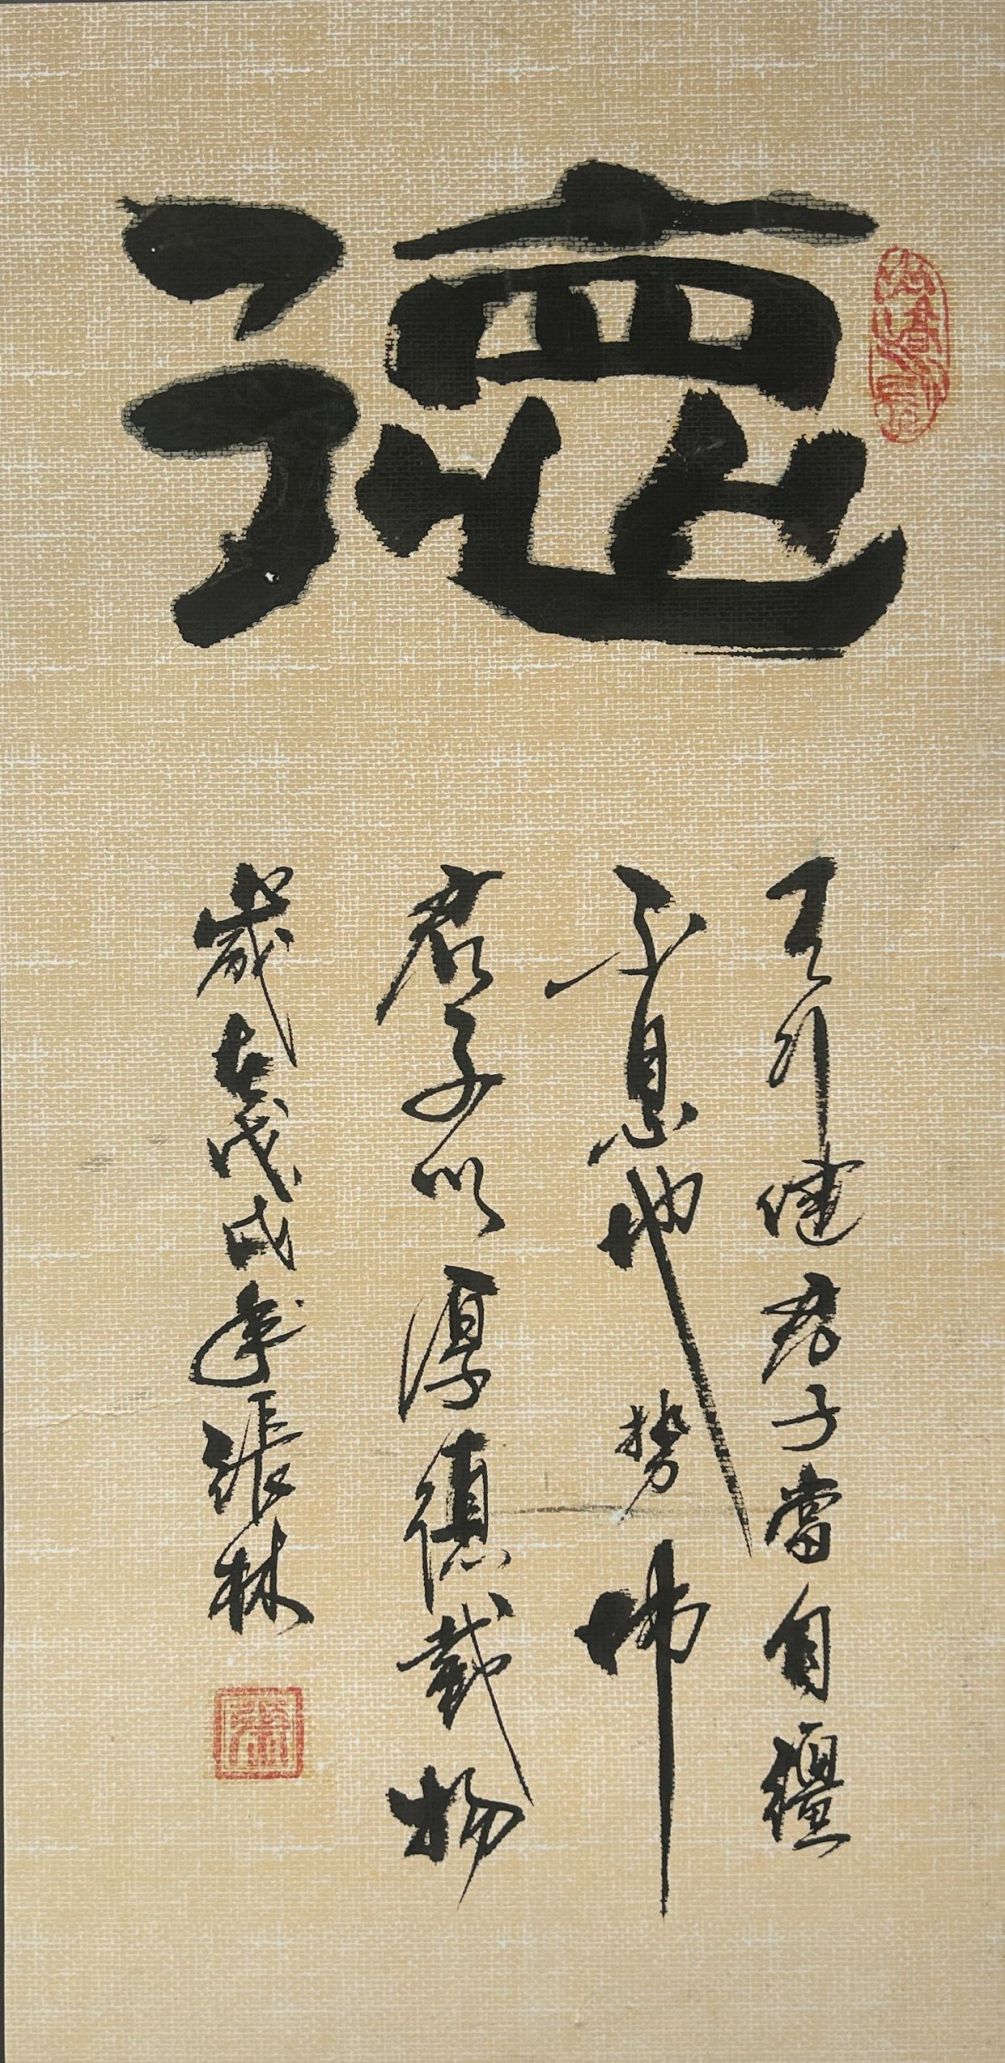 德
天行健君子當自彊
不息地势坤
君子以厚德載物
歲在戊戌年張林